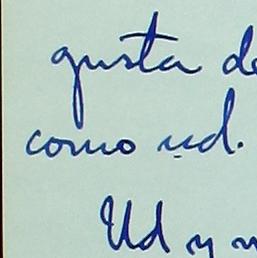 gusta de
como ud.
Ud y